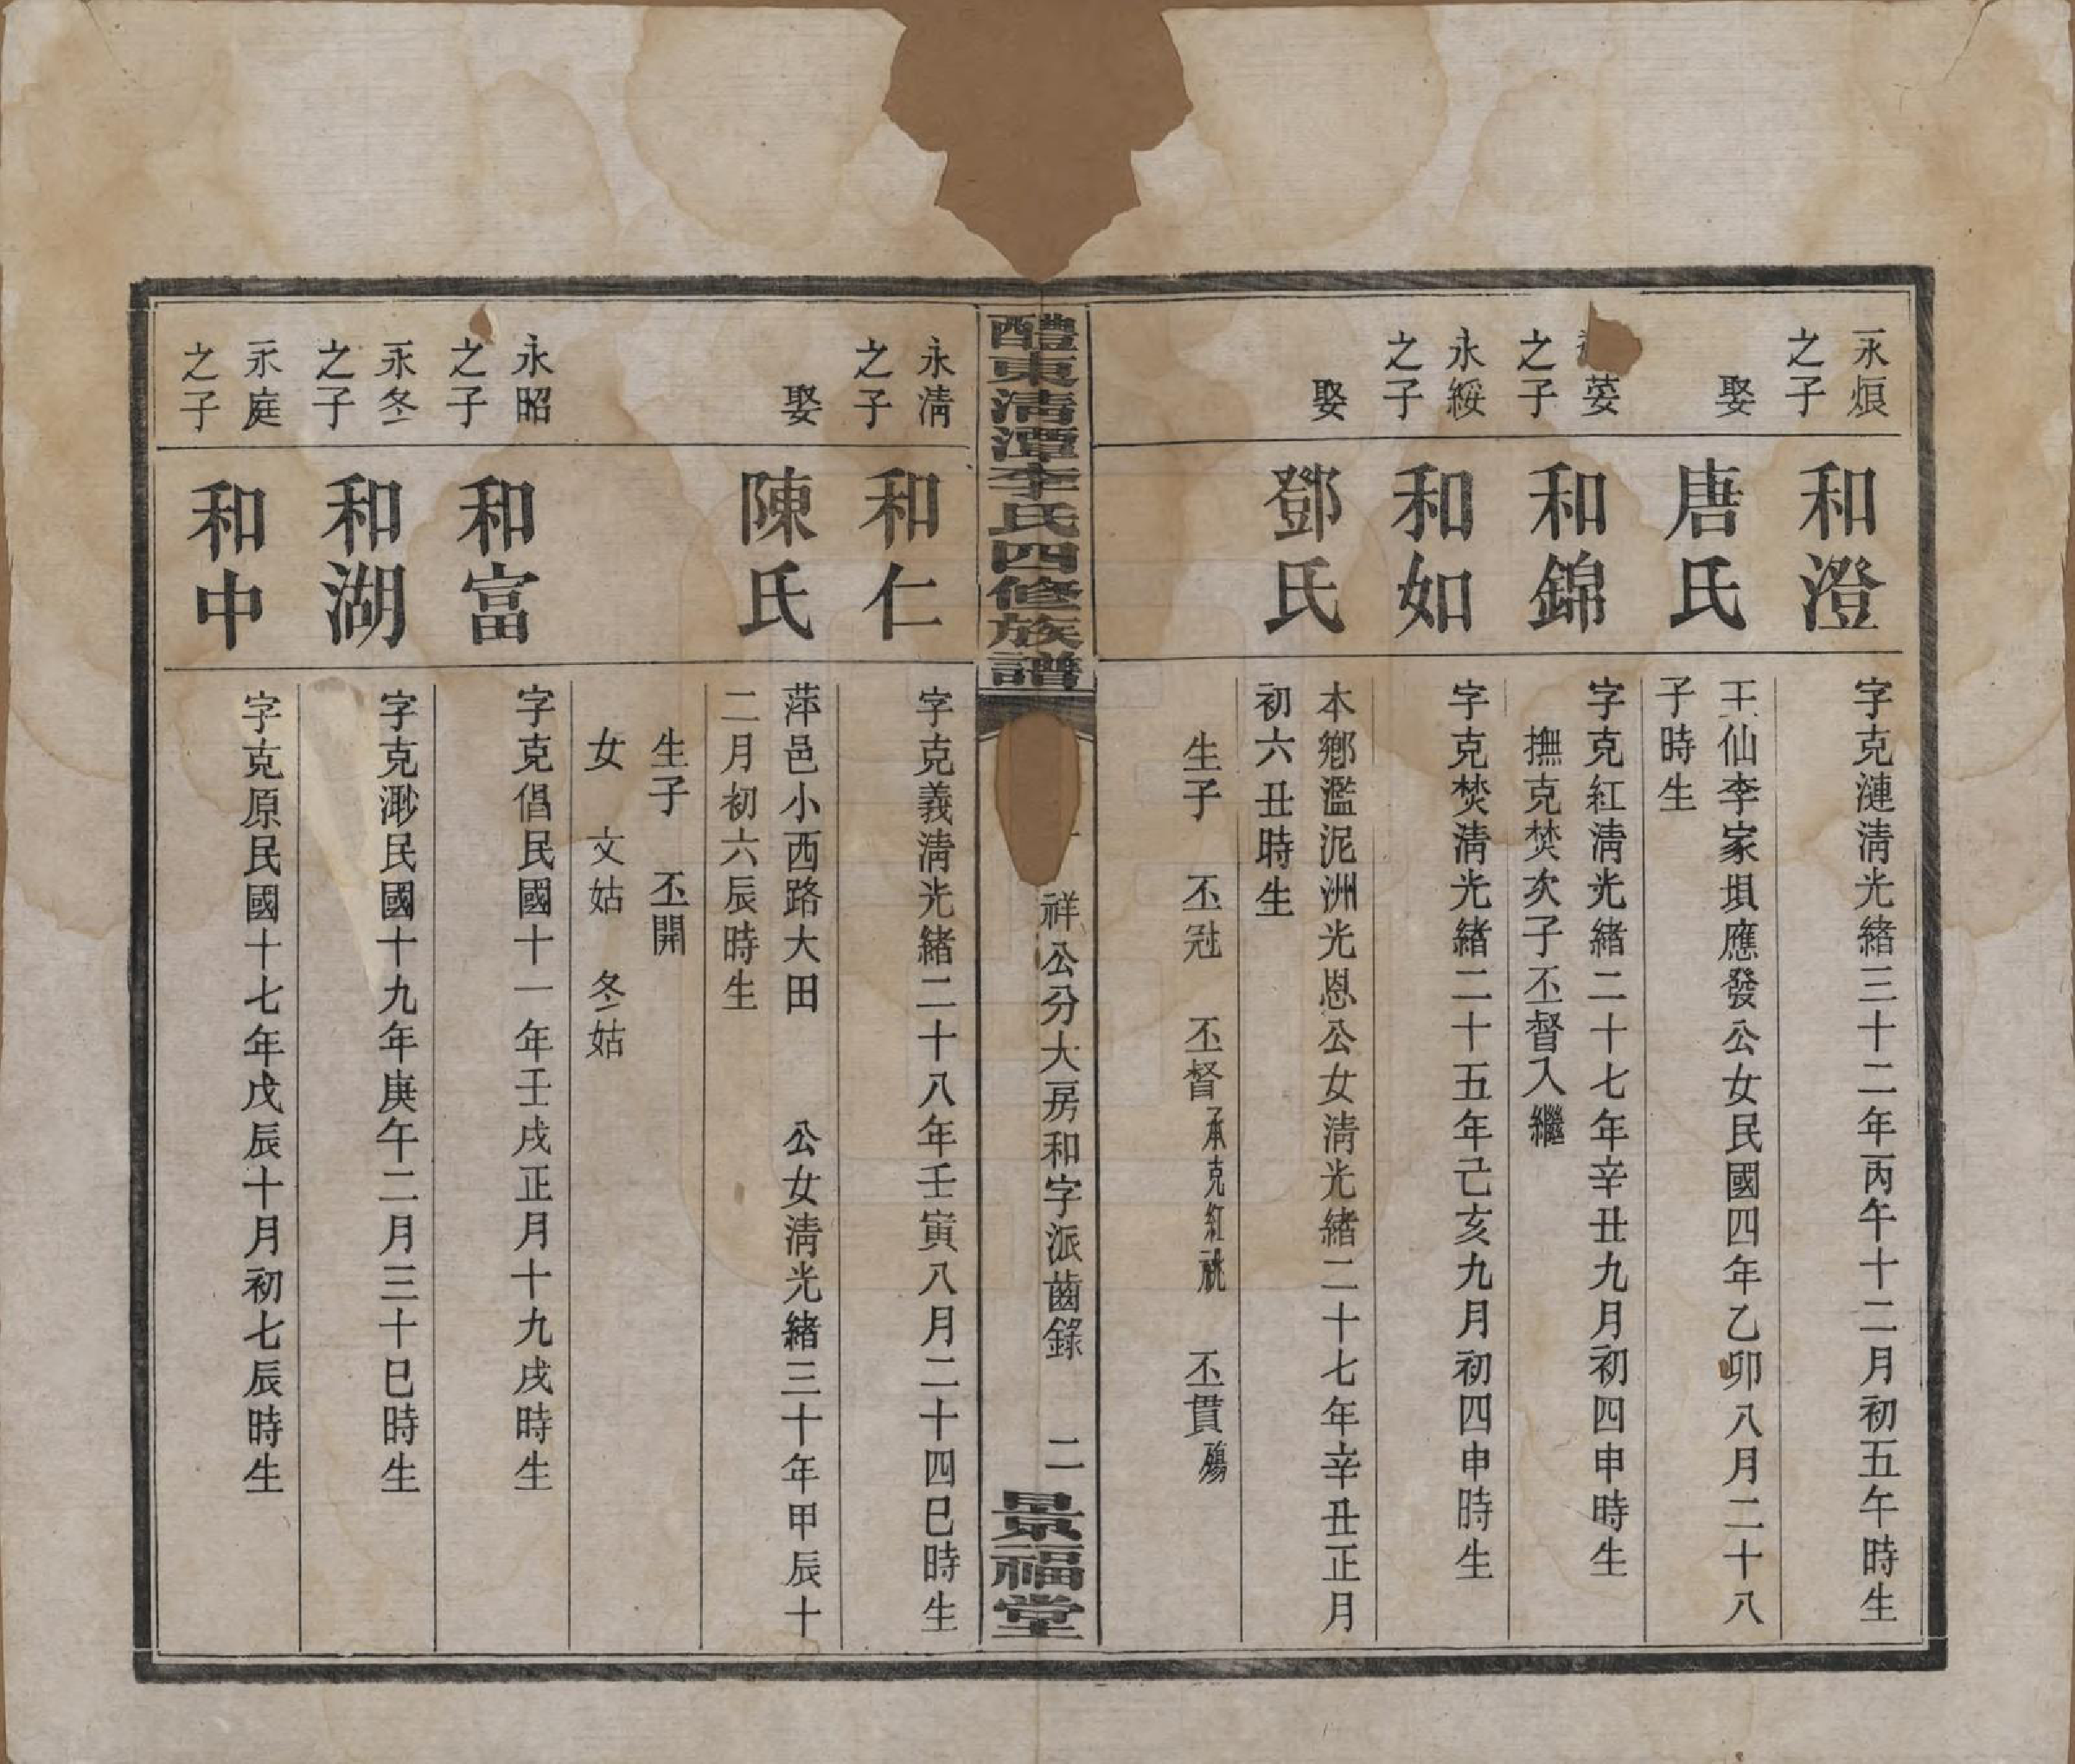 永烜之子
和澄
字克漣淸光緒三十二年丙午十二月初五午時生
娶
唐氏
王仙李家垻應發公女民國四年乙卯八月二十八
子時生
蒌之子
和錦
字克紅淸光緒二十七年辛丑九月初四申時生
撫克焚次子丕督入繼
永綏之子
和如
字克焚淸光緒二十五年己亥九月初四申時生
娶
鄧氏
本鄕濫泥洲光恩公女淸光緒二十七年辛丑正月
初六丑時生
生子 丕冠 丕督承克紅祧 丕貫殤
醴東淸潭李氏四修族譜
祥公分大房和字派齒錄 二
景福堂
永淸之子
和仁
字克義淸光緒二十八年壬寅八月二十四巳時生
娶
陳氏
萍邑小西路大田 公女淸光緒三十年甲辰十
二月初六辰時生
生子 丕開
女 文姑 冬姑
永昭之子
和富
字克倡民國十一年壬戌正月十九戌時生
永冬之子
和湖
字克渺民國十九年庚午二月三十巳時生
永庭之子
和中
字克原民國十七年戊辰十月初七辰時生